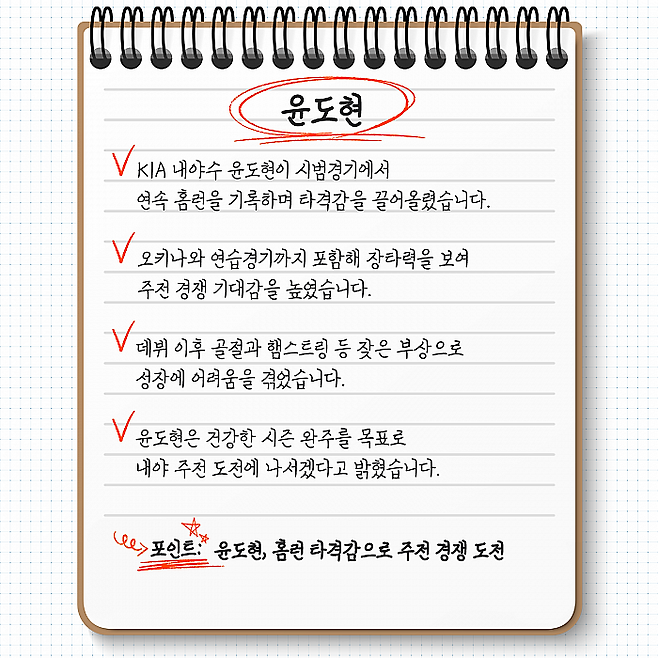 윤도현
KIA 내야수 윤도현이 시범경기에서
연속 홈런을 기록하며 타격감을 끌어올렸습니다.
오키나와 연습경기까지 포함해 장타력을 보여
주전 경쟁 기대감을 높였습니다.
데뷔 이후 골절과 햄스트링 등 잦은 부상으로
성장에 어려움을 겪었습니다.
윤도현은 건강한 시즌 완주를 목표로
내야 주전 도전에 나서겠다고 밝혔습니다.
포인트: 윤도현, 홈런 타격감으로 주전 경쟁 도전